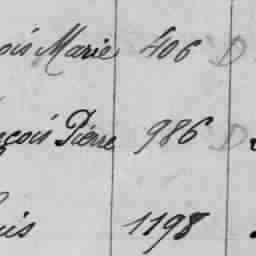 ois Marie 406 D
nçois Pierre 986 D
uis 1198